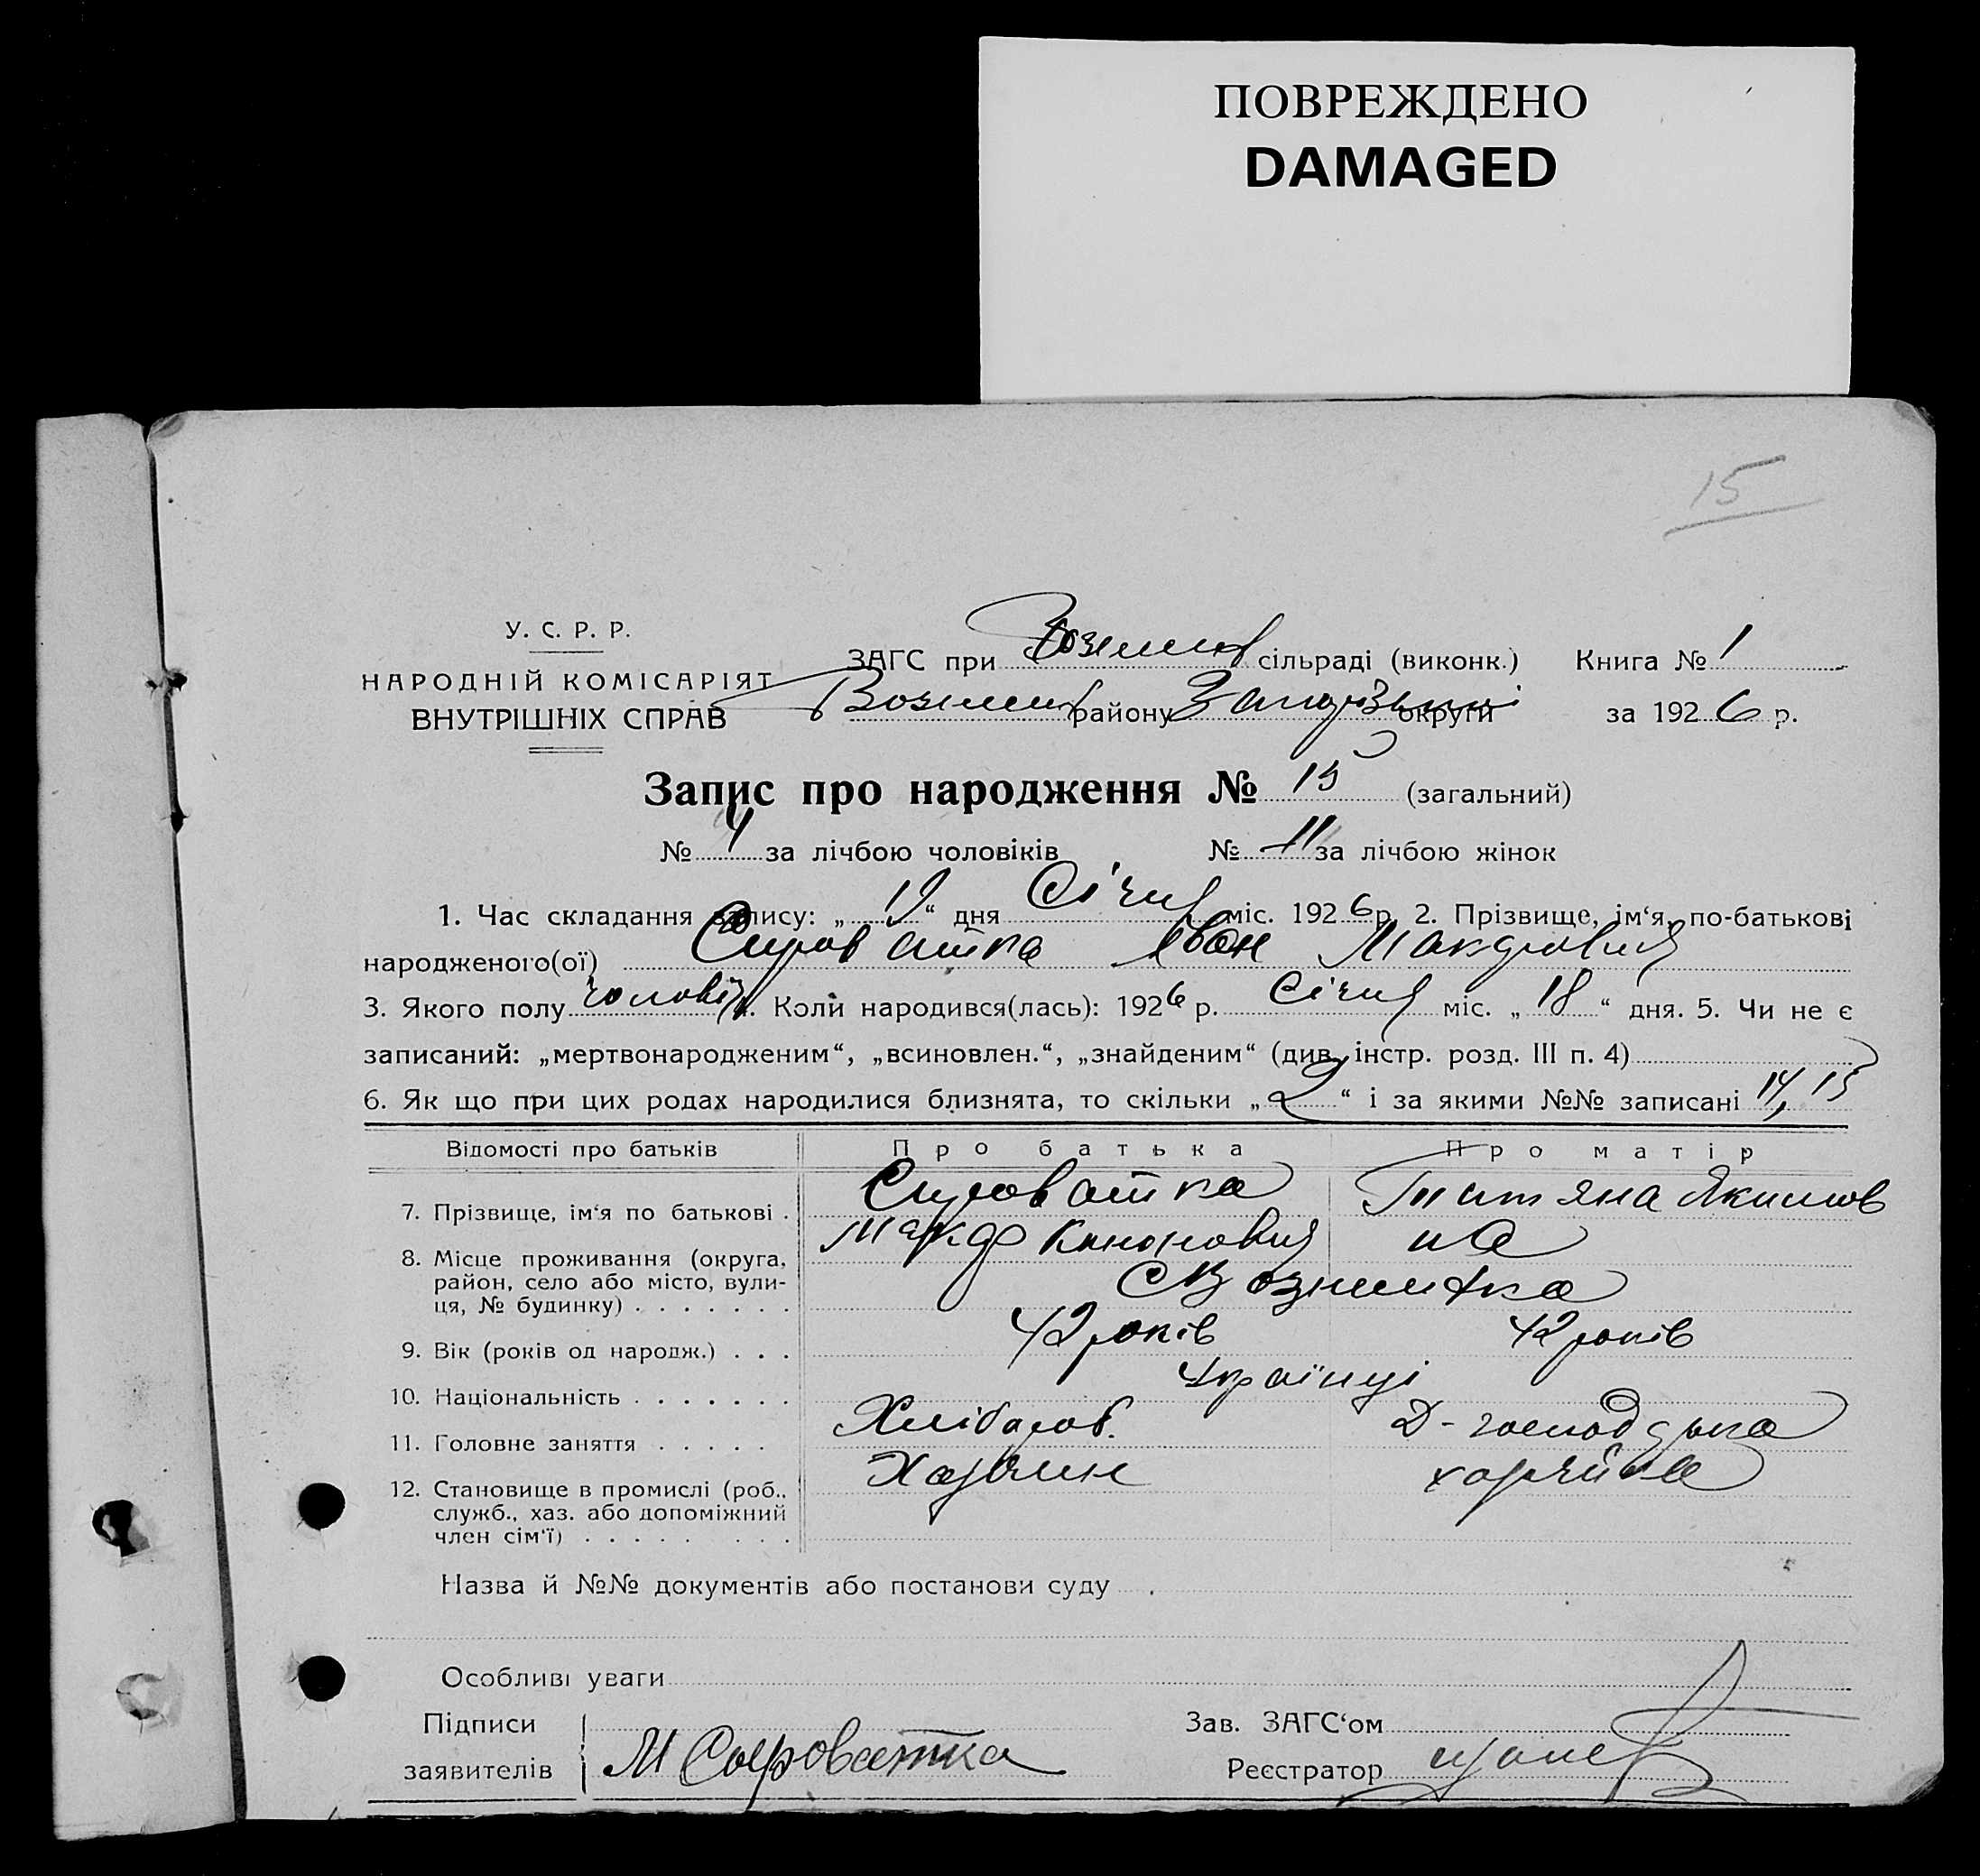 ПОВРЕЖДЕНО
DAMAGED
15
У. С. Р. Р.
НАРОДНІЙ КОМІСАРІЯТ
ВНУТРІШНІХ СПРАВ
ЗАГС при сільраді (виконк.) Книга № 1
району округи за 1926 р.
Запис про народження № 15 (загальний)
№ 4 за лічбою чоловіків № 11 за лічбою жінок
1. Час складання запису: „19“ дня Січня міс. 1926 р. 2. Прізвище, ім‘я, по-батькові
народженого(ої) Сироватка Іван Макарович
3. Якого полу чоловіч 4. Коли народився(лась): 1926 р. Січня міс. „18“ дня. 5. Чи не є
записаний: „мертвонародженим“, „всиновлен.“, „знайденим“ (див. інстр. розд. III п. 4)
6. Як що при цих родах народилися близнята, то скільки „2“ і за якими №№ записані 14, 15
Відомості про батьків Про батька Про матір
7. Прізвище, ім‘я по батькові . Сироватка Татяна Якимов
Кононович на
8. Місце проживання (округа,
район, село або місто, вули-
ця, № будинку) . . . . . . .
9. Вік (років од народж.) . . . 42 років 42 років
10. Національність . . . . . . . Українці
11. Головне заняття . . . . . Хлібороб. Д-господарка
12. Становище в промислі (роб., Хазяин хазяйка
служб., хаз. або допоміжний
член сім‘ї) . . . . . . . .
Назва й №№ документів або постанови суду
Особливі уваги
Підписи Зав. ЗАГС‘ом
заявителів М Сыроватка Реєстратор